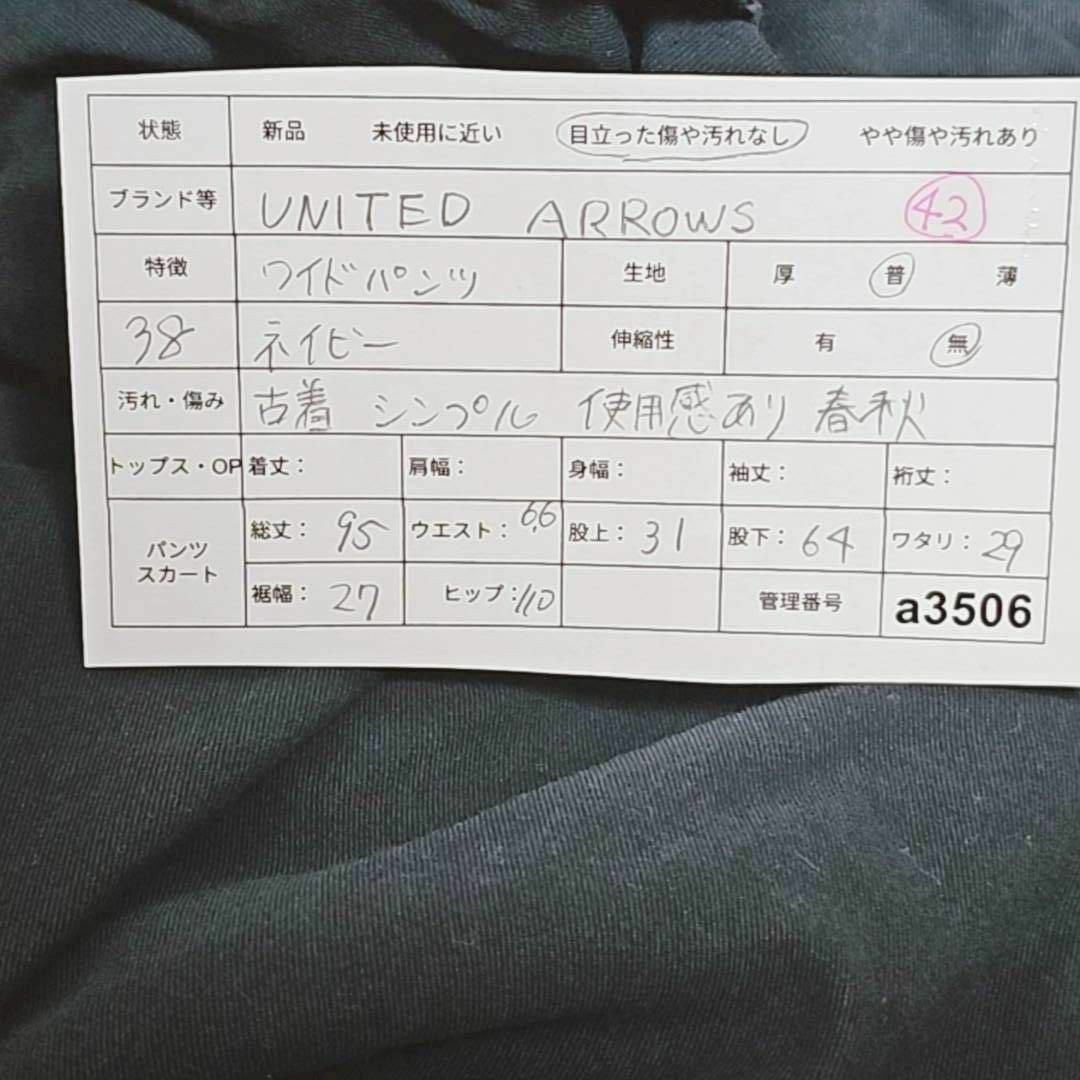 状態 新品 未使用に近い 目立った傷や汚れなし やや傷や汚れあり
ブランド等 UNITED ARROWS 42
特徴 ワイドパンツ 生地 厚 普 薄
38 ネイビー 伸縮性 有 無
汚れ・傷み 古着 シンプル 使用感あり 春秋
トップス・OP 着丈: 肩幅: 身幅: 袖丈: 裄丈:
パンツ スカート 総丈: 95 ウエスト: 66 股上: 31 股下: 64 ワタリ: 29
裾幅: 27 ヒップ: 110 管理番号 a3506